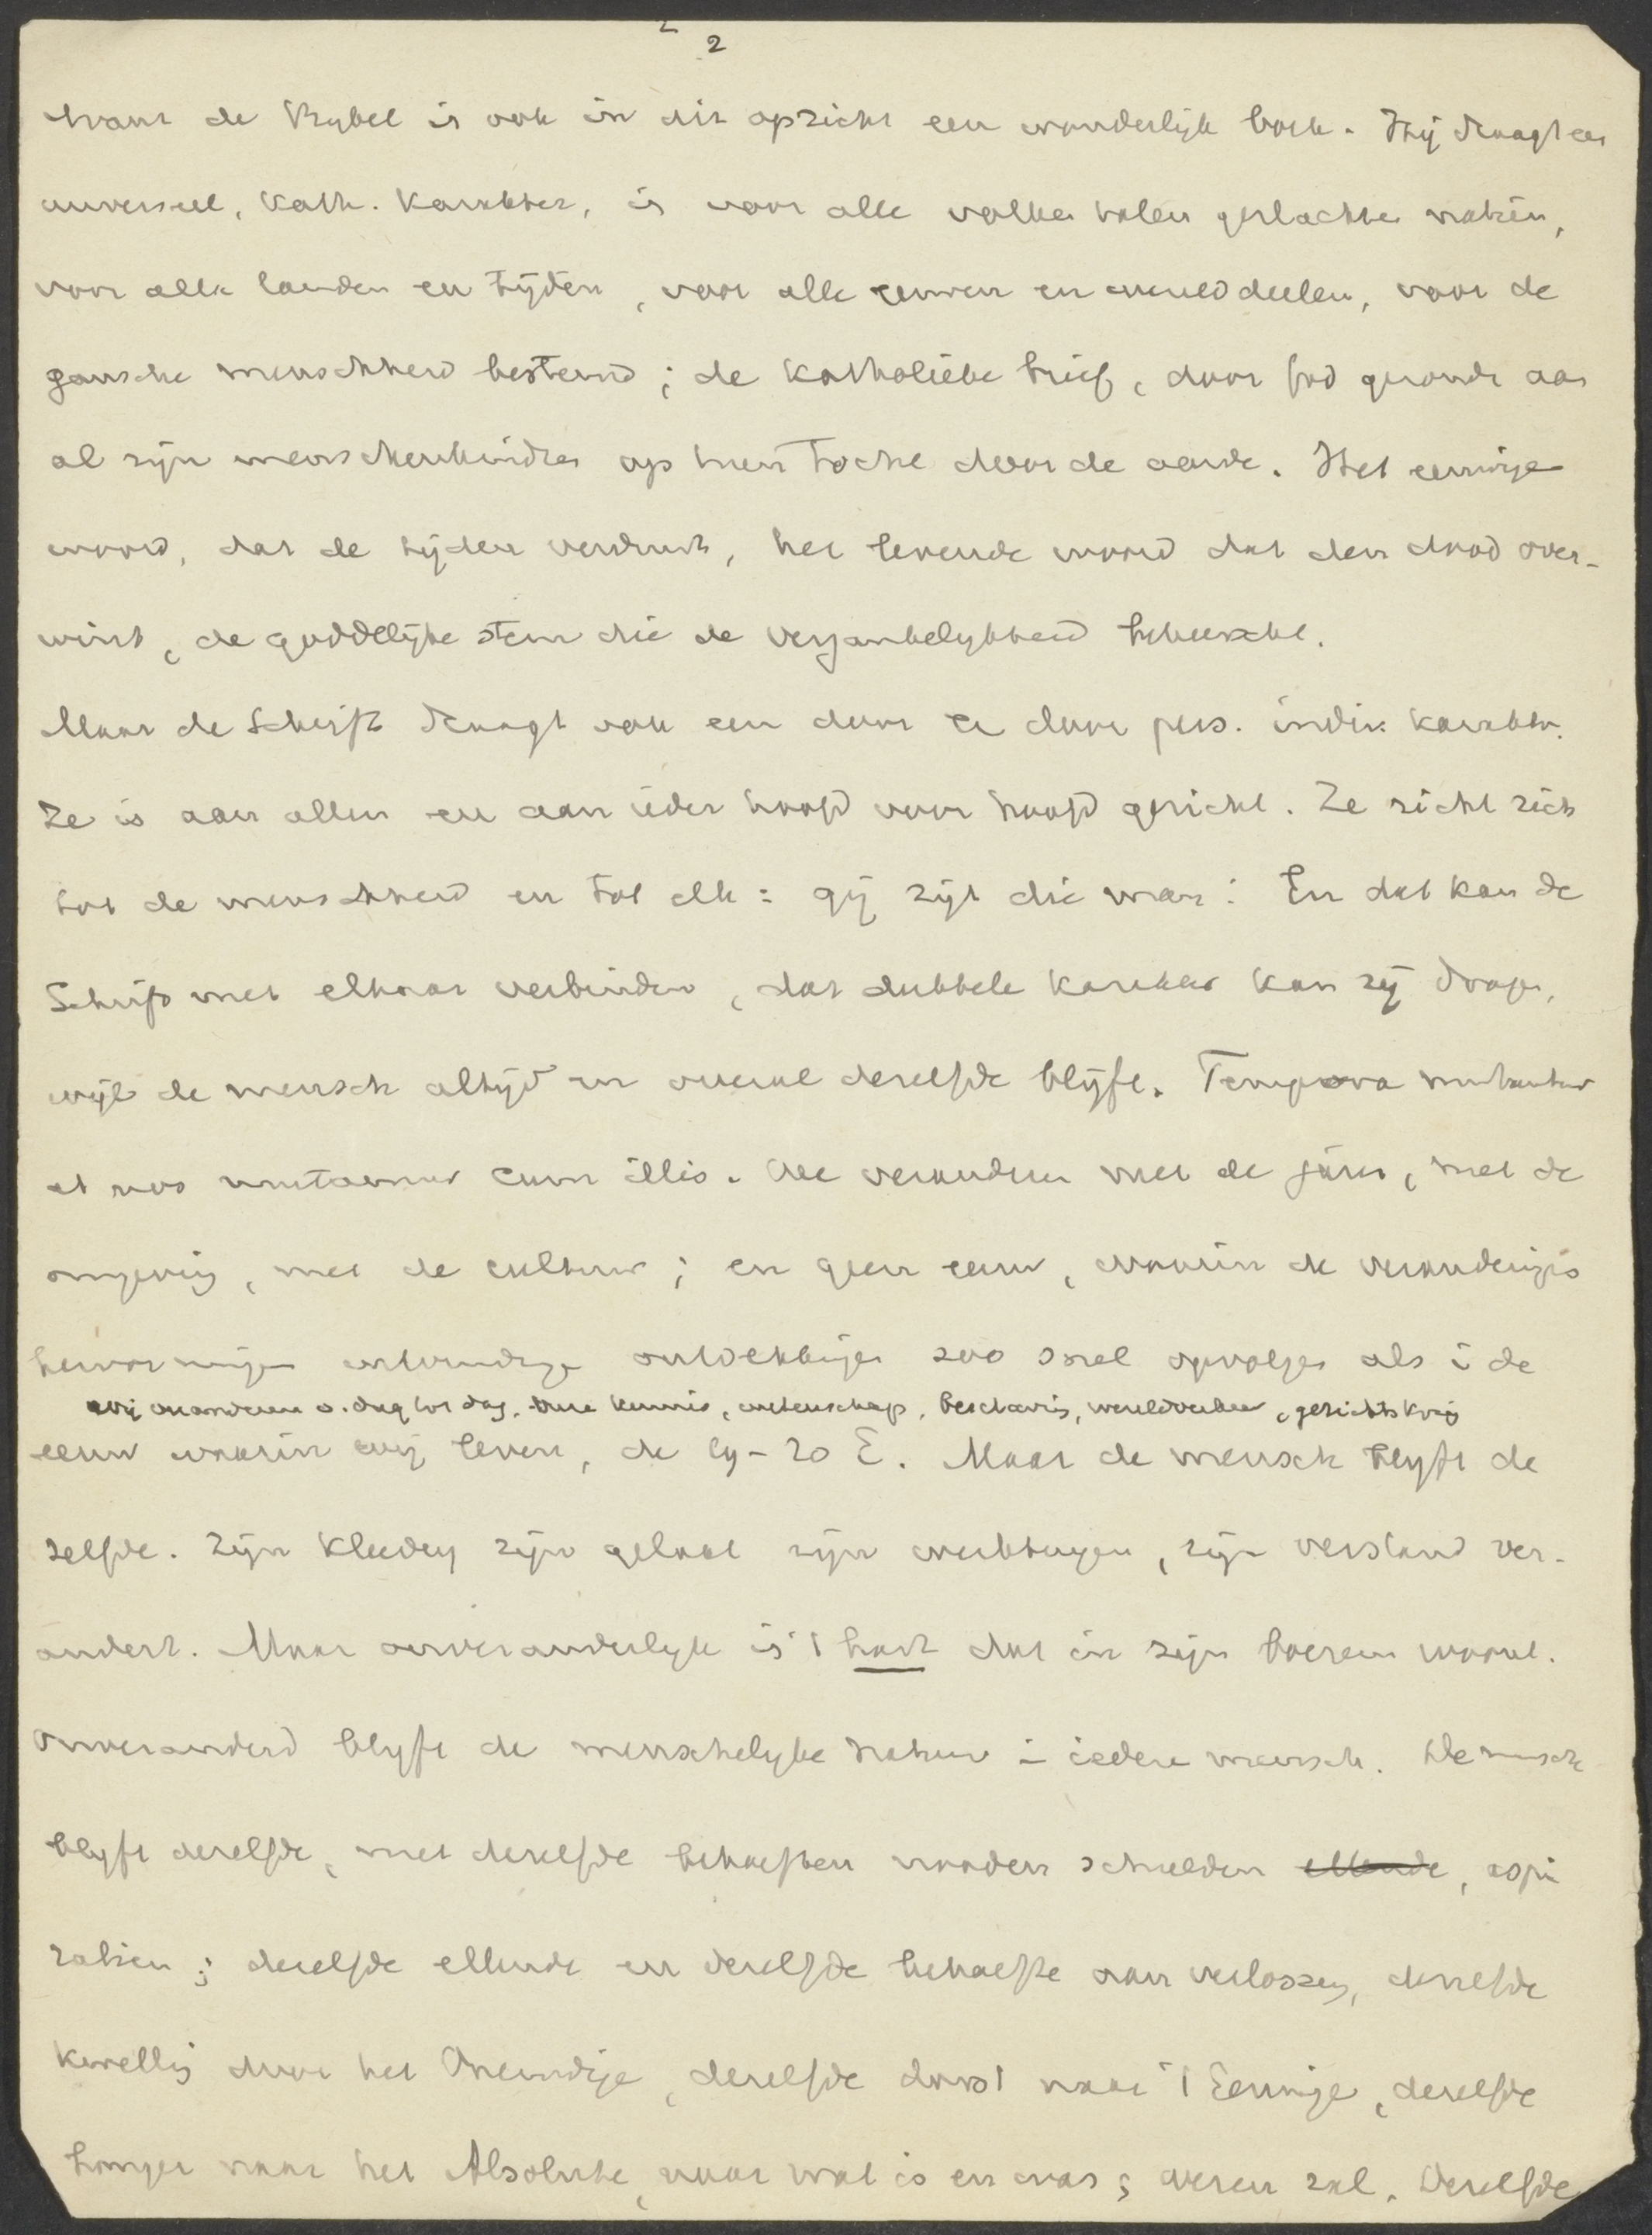 2
want de Bybel is ook in dit opzicht een wonderlijk boek. Hij draagt een
universeel, kath. karakter, is voor alle volken talen geslachten natiën,
voor alle landen en tijden, voor alle eeuwen en werelddeelen, voor de
gansche menschheid bestemd; de katholieke brief, door God gezonde aan
al zijn menschenkindren op hun tocht door de aarde. Het eeuwige
woord, dat de tijden verduurt, het levende woord dat den dood over-
wint, de goddelijke stem die de vergankelykheid beheerscht.
Maar de Schrift draagt ook een door en door pers. indiv. karakter.
Ze is aan allen en aan ieder hoofd voor hoofd gericht. Ze richt zich
tot de menschheid en tot elk: gij zijt die man: En dat kan de
Schrift met elkaar verbinden, dat dubbele karakter kan zij dragen,
wijl de mensch altijd en overal dezelfde blijft. Tempora mutantur
et nos mutamur cum illis. We veranderen met de jaren, met de
omgeving, met de cultuur; en geen eeuw, waarin de veranderingen
hervormingen ontdekkingen zoo snel opvolgen als i de
wij veranderen v. dag tot dag. onze kennis, wetenschap, beschaving, wereldverkeer, gezichtskring
eeuw waarin wij leven, de 19-20 E. Maar de mensch blyft de
zelfde. Zijn kleeding zijn gelaat zijn werktuigen, zijn verstand ver-
andert. Maar onveranderlyk is 't hart dat in zijn boezem woont.
Onveranderd blyft de menschelyke natuur i iedere mensch. De mensch
blyft dezelfde, met dezelfde behoeften nooden schulden ellende, aspi
ratien; dezelfde ellende en dezelfde behoefte aan verlossing, dezelfde
kwelling door het Oneindige, dezelfde dorst naar 't Eeuwige, dezelfde
honger naar het Absolute, naar wat is en was; wezen zal. Dezelfde